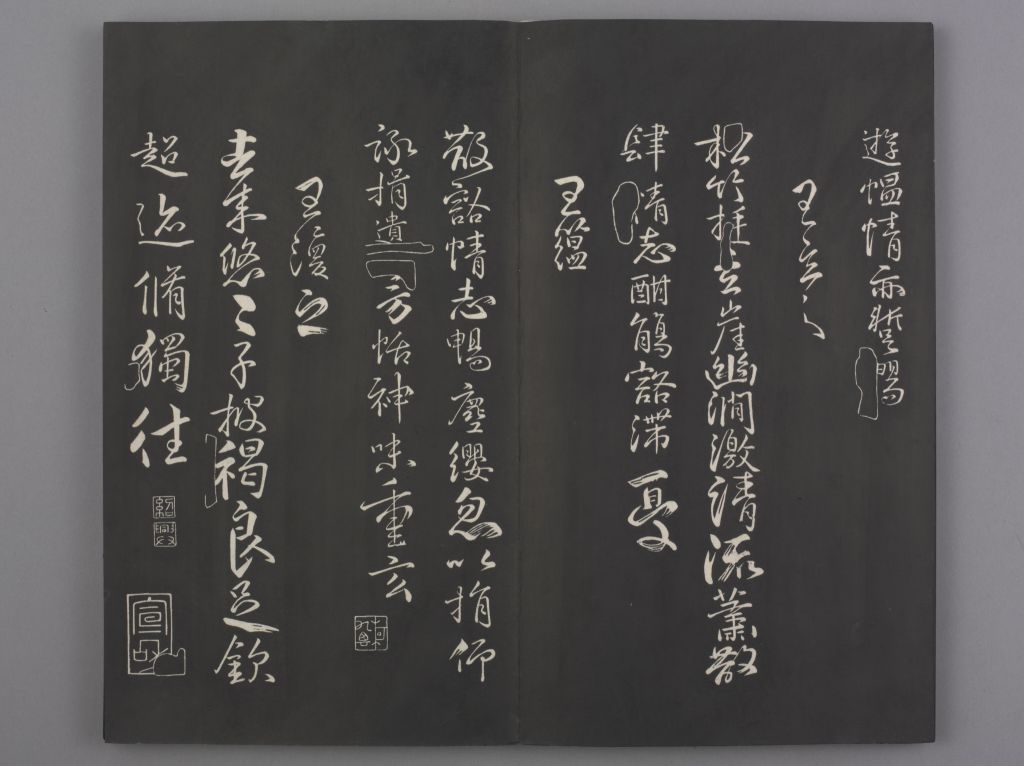 遊慍情亦蹔暢
王玄之
松竹挺巖崖幽澗激清流蕭散
肆情志酣觴豁滯憂
王蘊
散豁情志暢塵纓忽以捐仰
詠挹遺芳怡神味重玄
王渙之
去來悠〻子披褐良足欽
超迹脩獨往
紹興